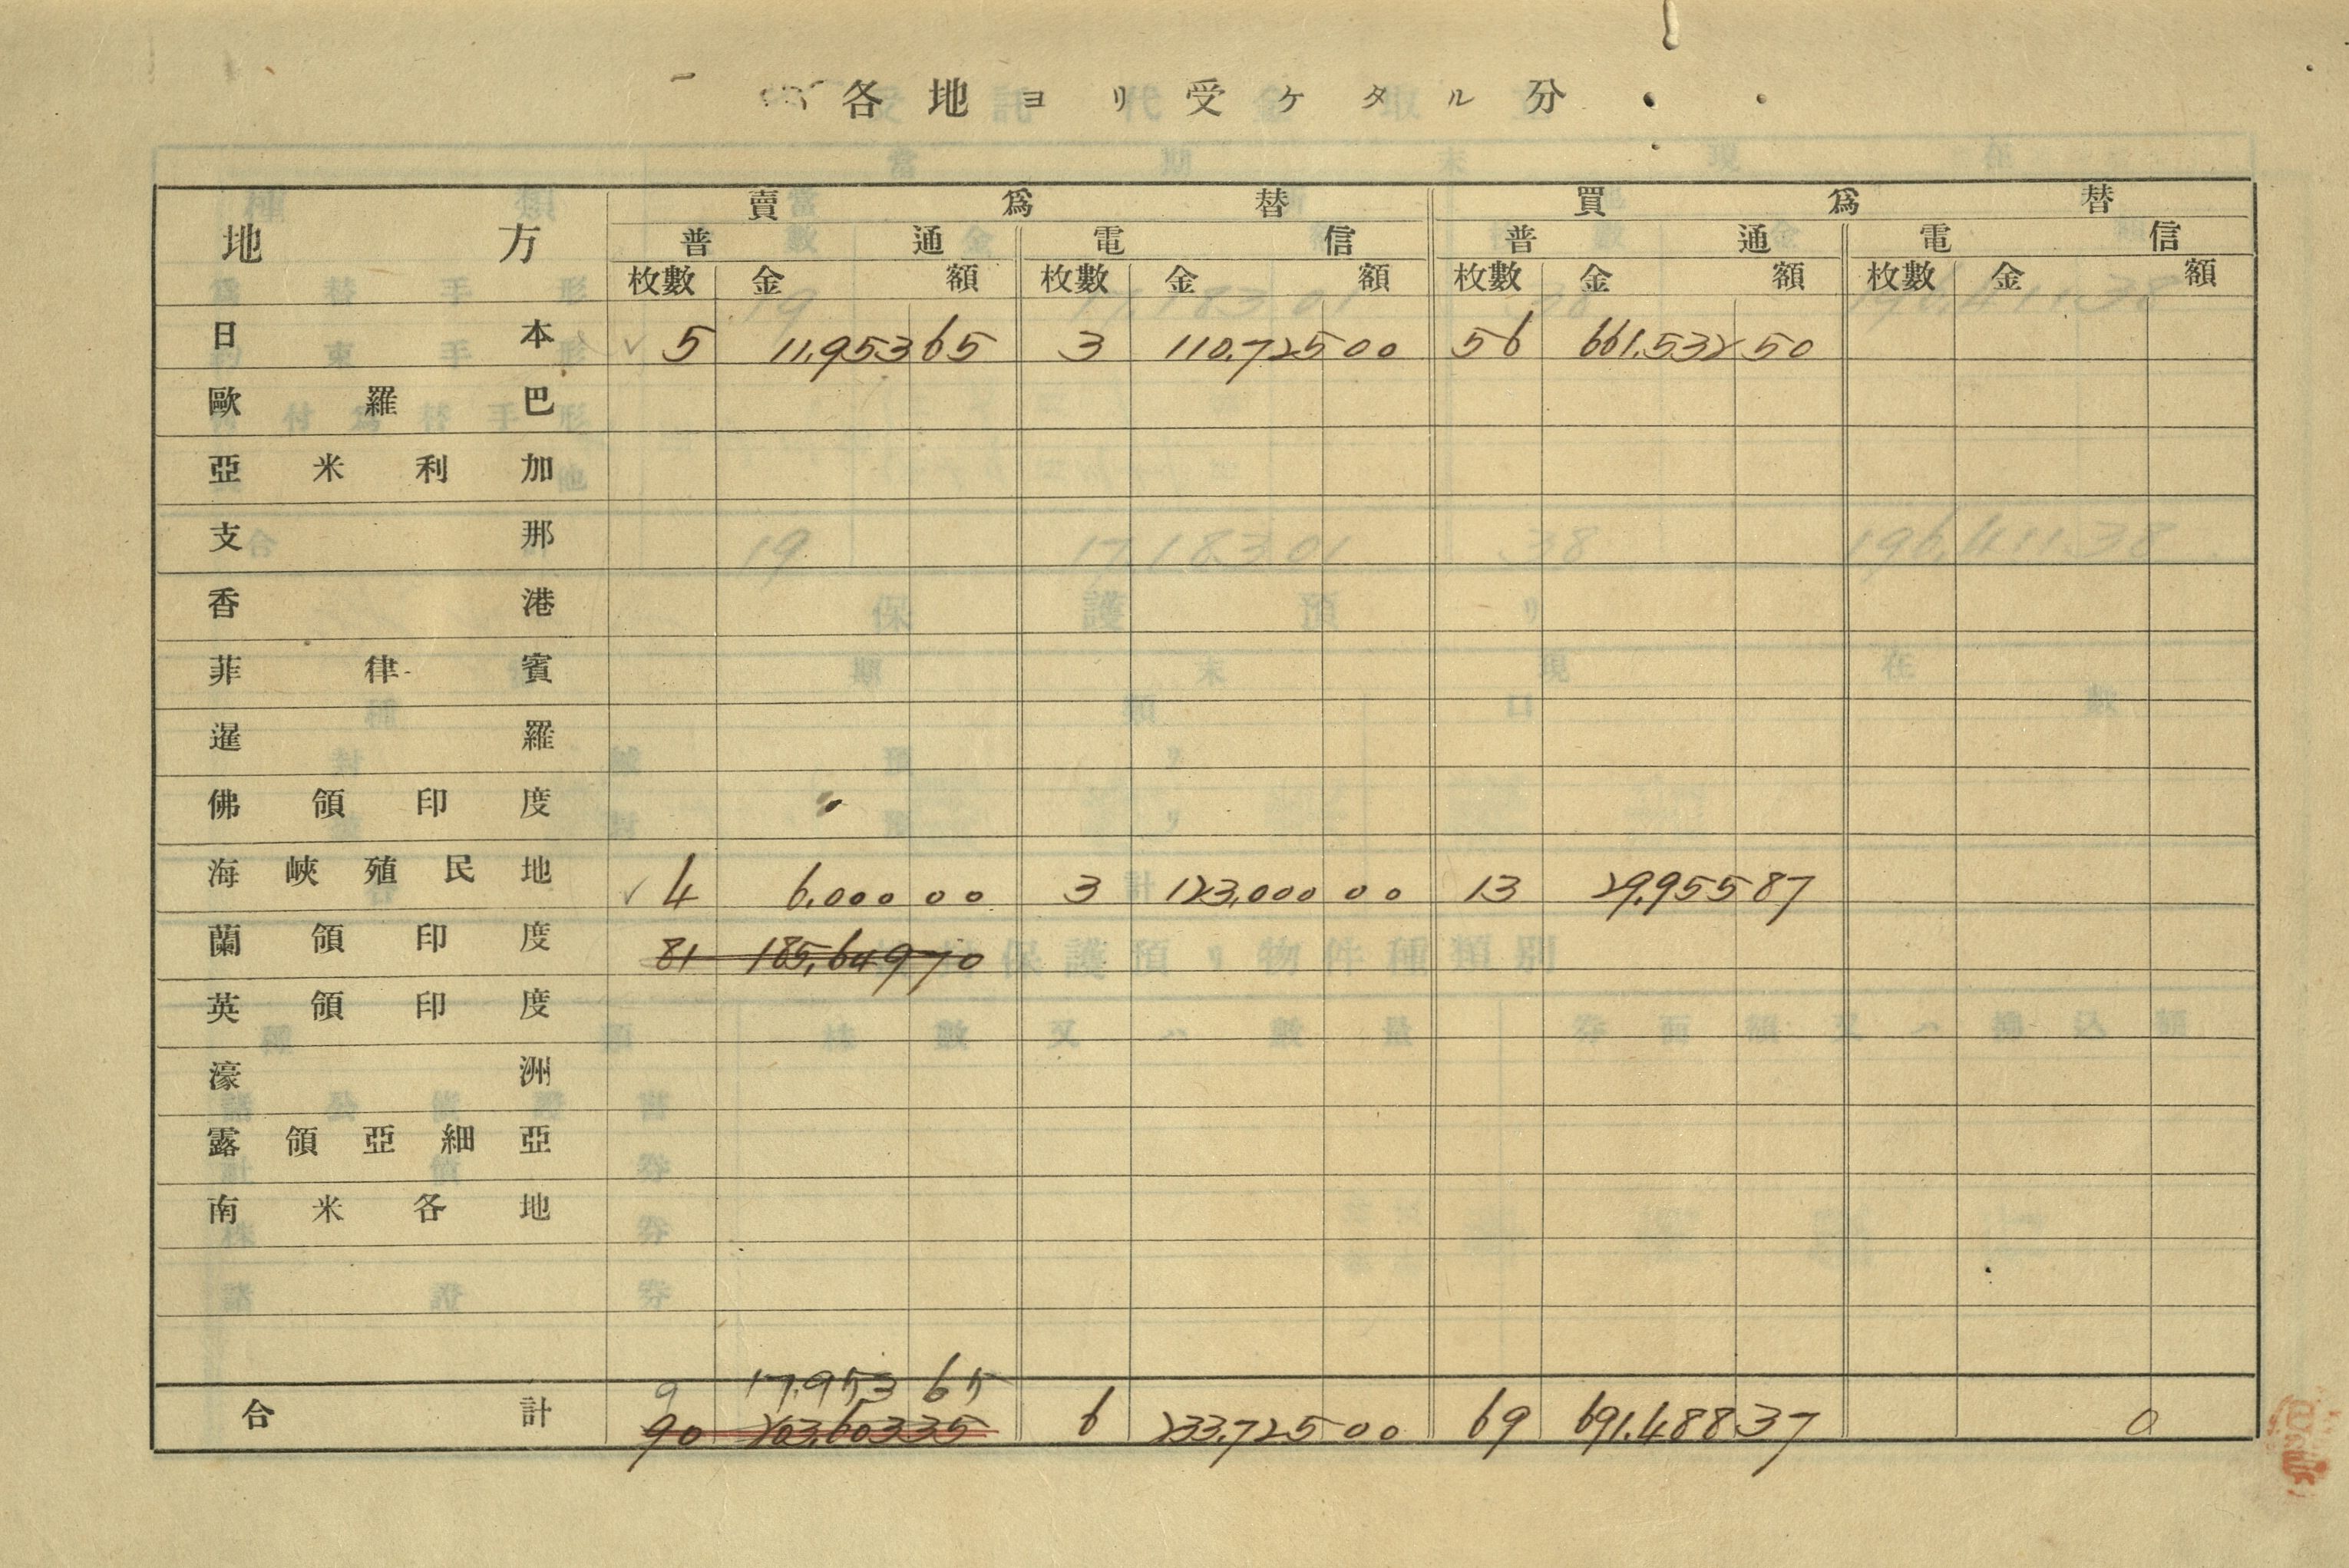 各地ヨリ受ケタル分
地方 賣爲替 買爲替
普通 電信 普通 電信
枚數 金額 枚數 金額 枚數 金額 枚數 金額
日本 5 11,953 65 3 110,725 00 56 661,532 50
歐羅巴
亞米利加
支那
香港
菲律賓
暹羅
佛領印度
海峽殖民地 4 6,000 00 3 123,000 00 13 29,955 87
蘭領印度 81 185,649 70
英領印度
濠洲
露領亞細亞
南米各地
9 17,953 65
合計 90 203,603 35 6 233,725 00 69 691,488 37 0